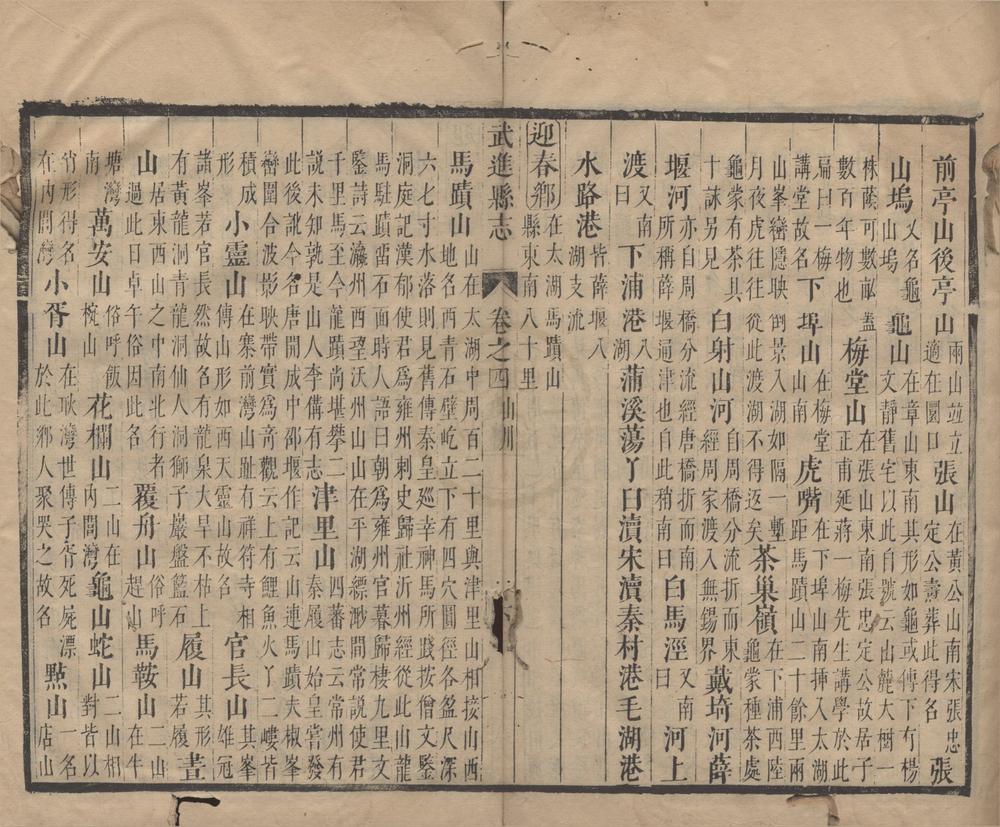 前亭山後亭山兩山竝立適在圜口張山在黃公山南宋張忠定公壽葬此得名張
山塢又名龜山塢龜山在章山東南其形如龜或傳下有楊文靜舊宅以此自號云山麓大樹一
株蔭可數畝蓋數百年物也梅堂山在張山東南張忠定公故居子正甫延蔣一梅先生講學於此
扁曰一梅講堂故名下埠山在梅堂山南虎嘴在下埠山南揷入太湖距馬蹟山二十餘里兩
山峯巒隱映倒景入湖如隔一塹月夜虎往往從此渡湖不得返矣茶巢嶺在下浦西陸龜蒙種茶處
龜蒙有茶具十詠另見白射山河自周橋分流折而東經周家渡入無錫界戴埼河薛
堰河亦自周橋分流經唐橋折而南所稱薛堰逼津也自此稍南曰白馬涇又南曰河上
渡又南曰下浦港八湖蒲溪蕩丫曰瀆宋瀆秦村港毛湖港
水路港皆薛堰八湖支流
迎春鄉在太湖馬蹟山縣東南八十里
武進縣志 卷之四 山川
馬蹟山山在太湖中周百二十里與津里山相接山西地名西青石壁屹立下有四穴圓徑各盈尺深
六七寸水落則見舊傳秦皇廵幸神馬所踐按僧文鑒洞庭記漢郁使君爲雍州刺史歸祉沂州經從此山龍
馬駐蹟霤石面時人語曰朝爲雍州官暮歸棲九里文鑒詩云瀛州西望沃州山山在平湖縹緲間常說使君
千里馬至今龍蹟尚堪攀二說未知孰是山人李備有志津里山四蕃志云常州有秦履山始皇嘗發
此後訛今名唐開成中邵堰作記云山連馬蹟夫椒峯巒圍合波影映帶實爲奇觀云上有鯉魚火丫二嶁皆
積成形小靈山在寨前灣山趾有祥符寺相傳山形如西天靈山故名官長山其峯雄冠
諸峯若官長然故名有龍泉大旱不枯上有黃龍洞青龍洞仙人洞獅子巖盤籃石履山其形若履晝
山居東西山之中南北行者過此日卓午俗因此名覆舟山俗呼趕山馬鞍山二山在牛
塘灣南萬安山俗呼飯椀山花欄山二山在內閭灣龜山蛇山二山相對皆以
肖形得名在內閭灣小胥山在耿灣世傳子胥死屍漂於此鄉人聚哭之故名㸃山一名店山